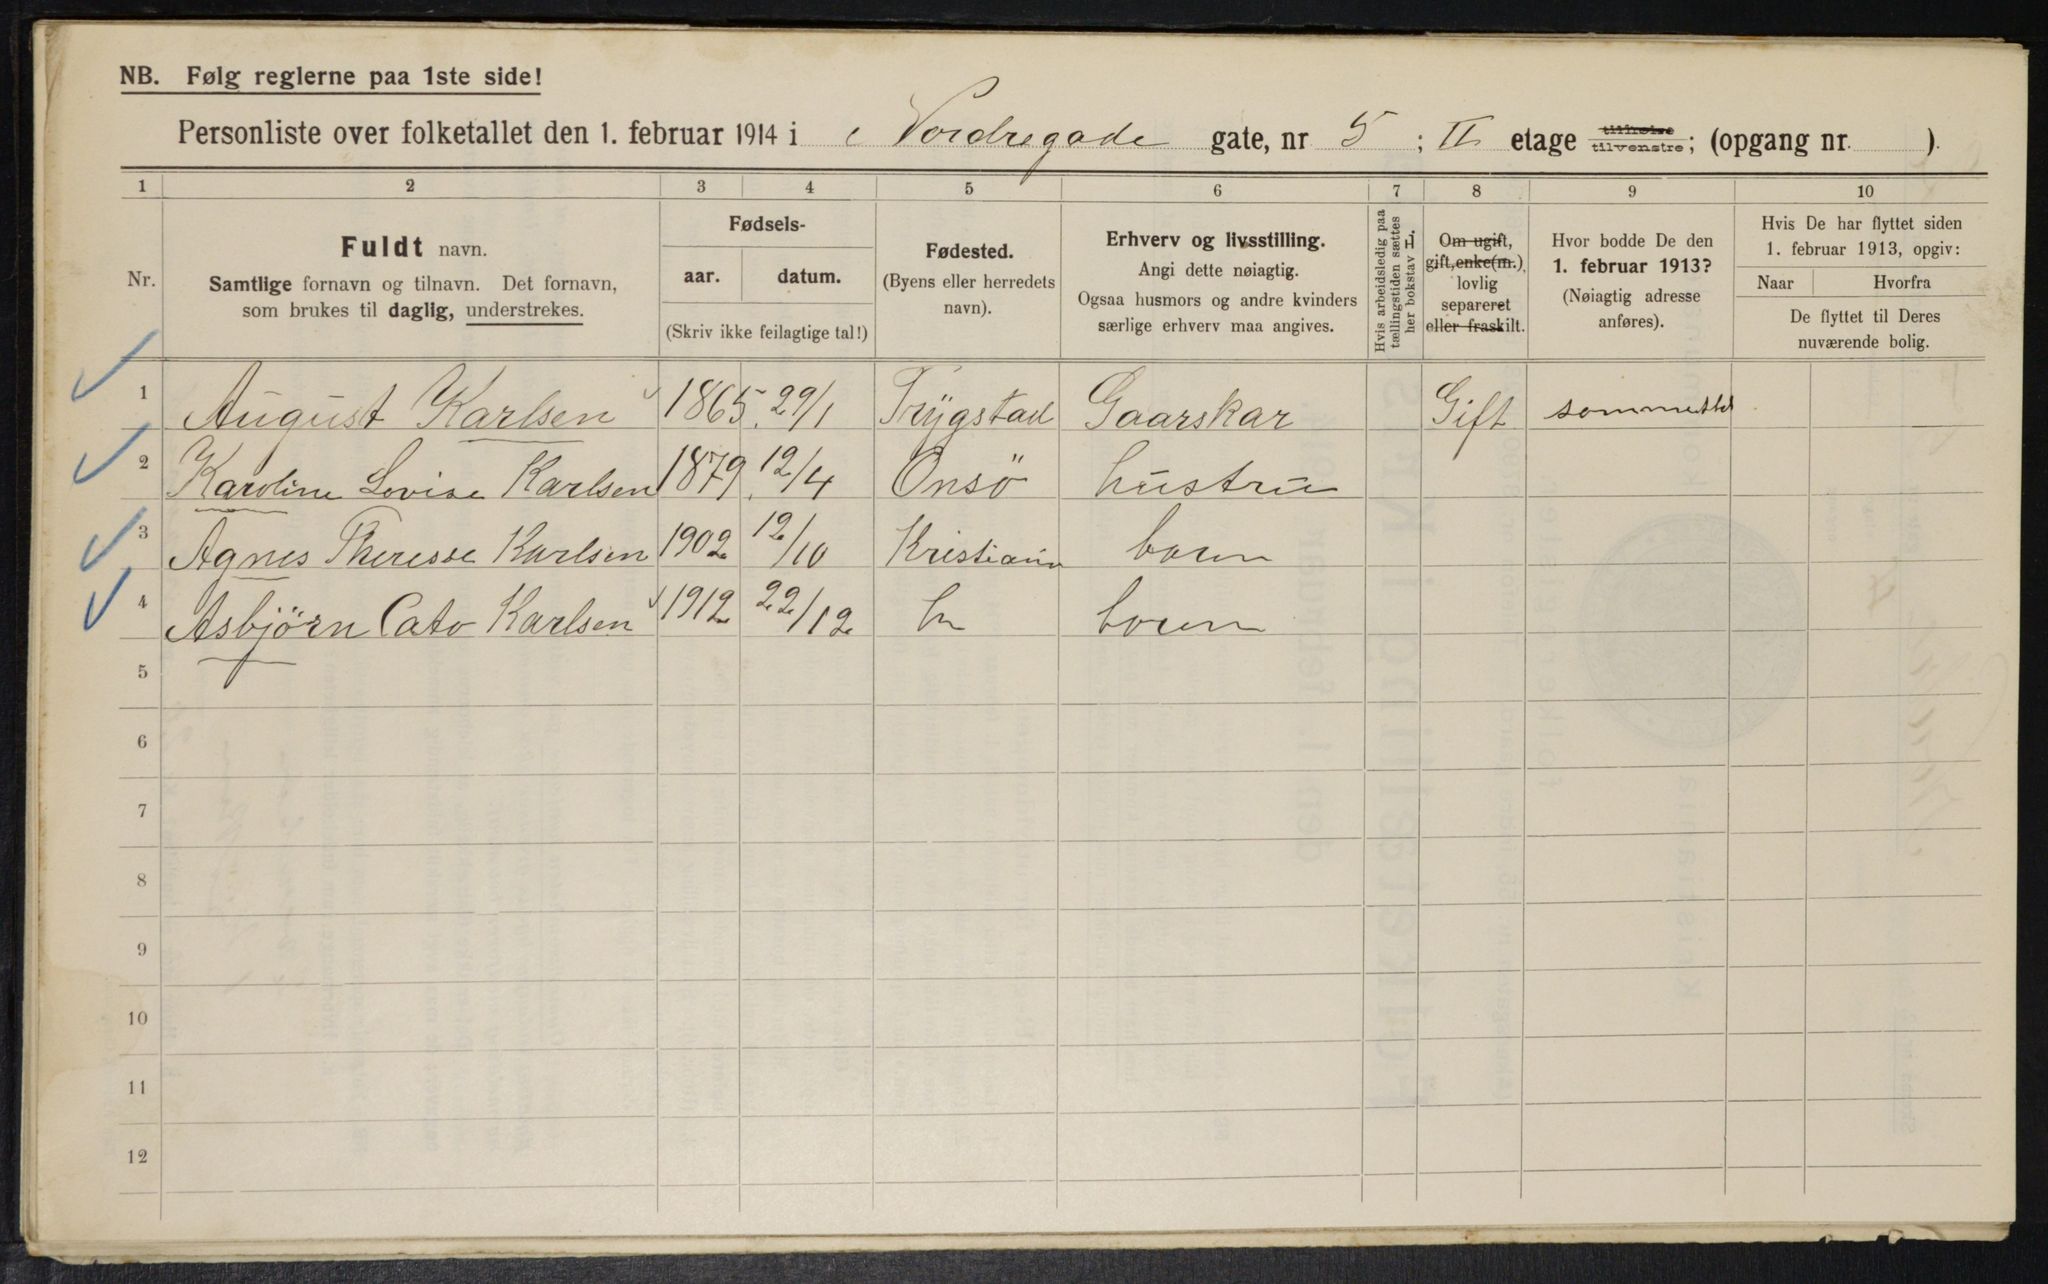 NB. Følg reglerne paa 1ste side!
Personliste over folketallet den 1. februar 1914 i Nordregade gate, nr 5 ; II etage tilhøire tilvenstre; (opgang nr. ).
1 2 3 4 5 6 7 8 9 10
Nr.
Fuldt navn.
Samtlige fornavn og tilnavn. Det fornavn,
som brukes til daglig, understrekes.
Fødsels-
aar. datum.
(Skriv ikke feilagtige tal!)
Fødested.
(Byens eller herredets
navn).
Erhverv og livsstilling.
Angi dette nøiagtig.
Ogsaa husmors og andre kvinders
særlige erhverv maa angives.
Hvis arbeidsledig paa
tællingstiden sættes
her bokstav L.
Om ugift,
gift, enke(m.),
lovlig
separeret
eller fraskilt.
Hvor bodde De den
1. februar 1913?
(Nøiagtig adresse
anføres).
Hvis De har flyttet siden
1. februar 1913, opgiv:
Naar Hvorfra
De flyttet til Deres
nuværende bolig.
1 August Karlsen 1865 29/1 Trygstad Gaarskar Gift sommested
2 Karoline Lovise Karlsen 1879 12/4 Onsö hustru
3 Agnes Theresse Karlsen 1902 12/10 Kristiania barn
4 Asbjörn Cato Karlsen 1912 22/12 barn
5
6
7
8
9
10
11
12